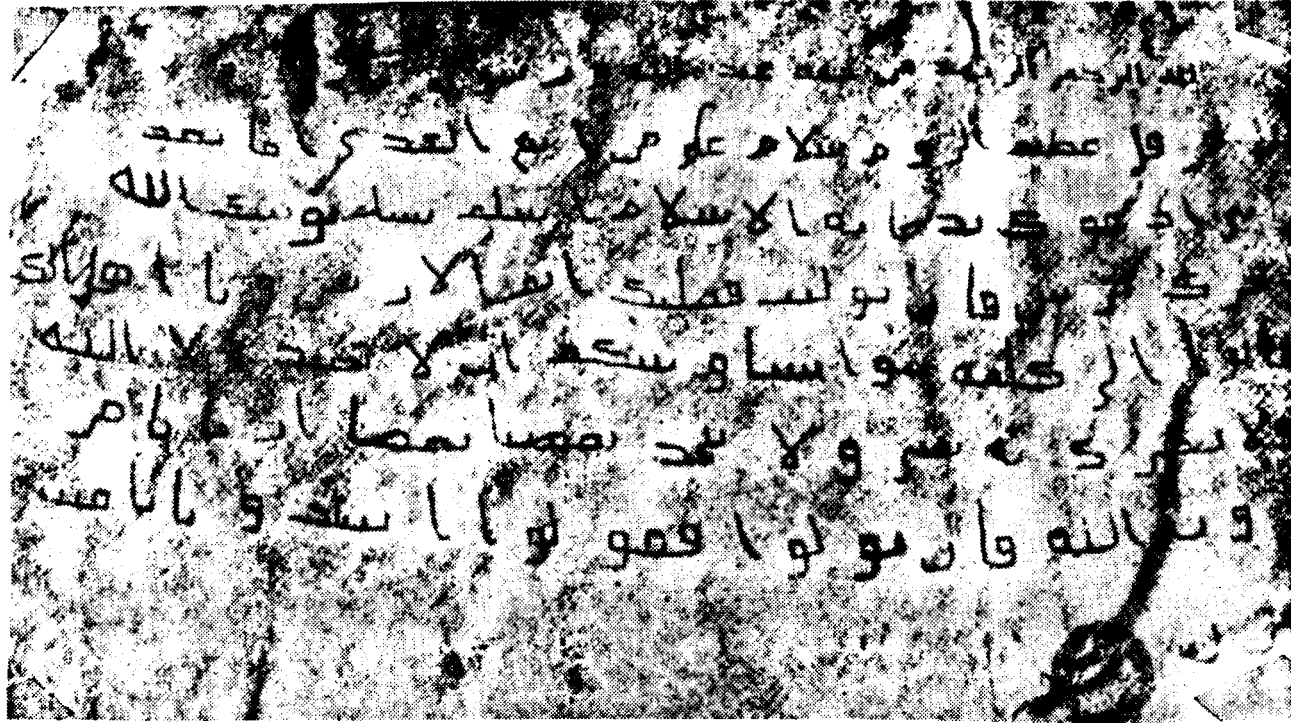 الله الرحمن الرحيم من محمد عبد الله ورسوله
هرقل عظيم الروم سلام على من اتبع الهدى اما بعد
ادعوك بدعاية الاسلام اسلم تسلم يوتك الله
مرتين فان توليت فعليك اثم الاريسيين ويا اهل الك
تعالوا الى كلمة سوا بيننا وبينكم الا نعبد الا الله
ولا نشرك به شيا ولا يتخذ بعضنا بعضا اربابا من
دون الله فان تولوا فقولوا اشهدوا بانا مسلمون